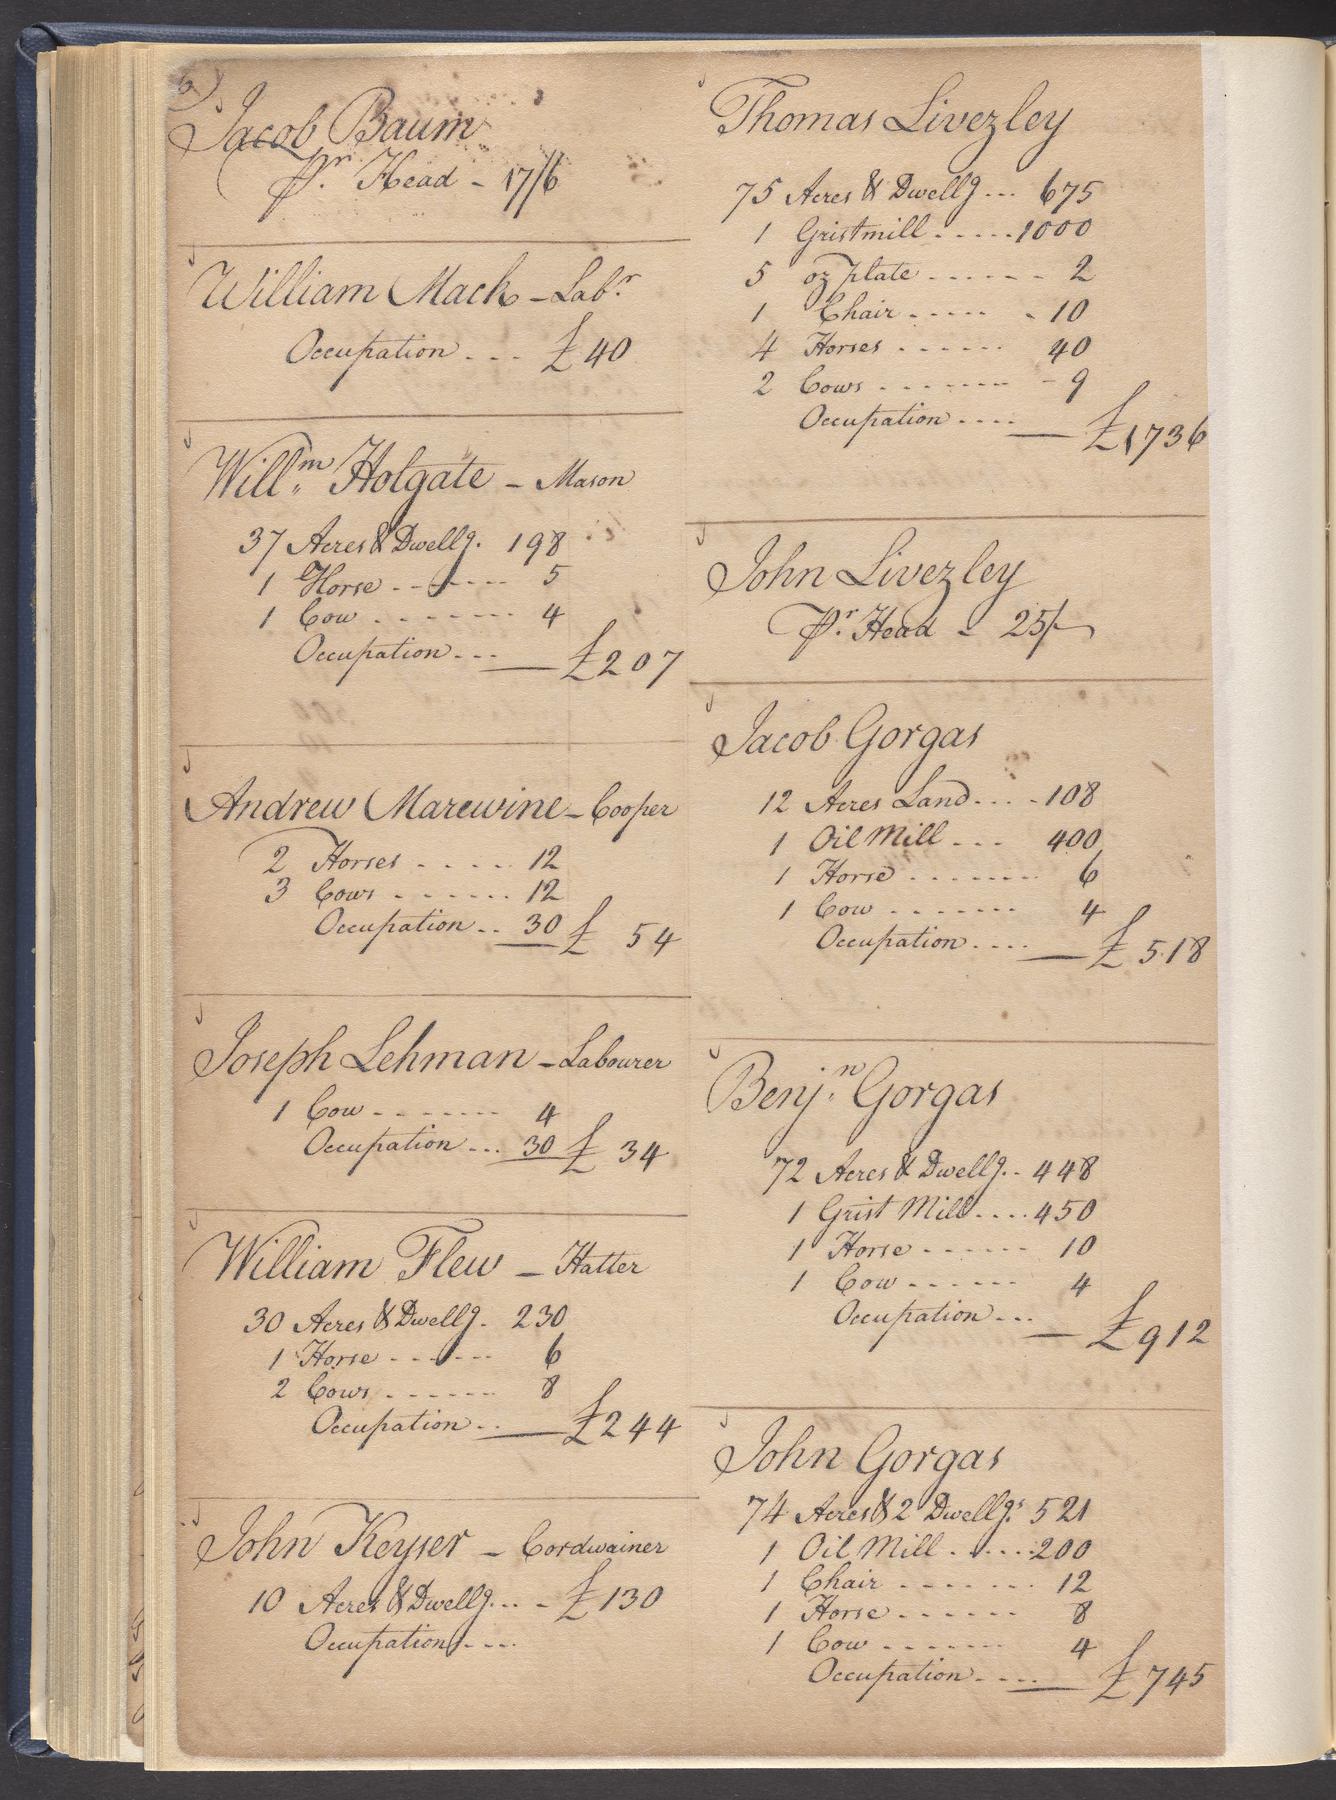 6)
Jacob Baum
Pr. Head - 17/6
William Mack - Labr.
Occupation . . . £ 40
Willm. Holgate - Mason
37 Acres & Dwellg. 198
1 Horse - - - - - - 5
1 Cow - - - - - - - 4
Occupation - - - £ 207
Andrew Marewine - Cooper
2 Horses - - - - - 12
3 Cows - - - - - - 12
Occupation . . 30 £ 54
Joseph Lehman - Labourer
1 Cow - - - - - - - 4
Occupation . . . 30 £ 34
William Flew - Hatter
30 Acres & Dwellg. 230
1 Horse - - - - - - 6
2 Cows - - - - - - 8
Occupation . . £ 244
John Keyser - Cordwainer
10 Acres & Dwellg. . . - £ 130
Occupation - - - -
Thomas Livezley
75 Acres & Dwellg - - - 675
1 Gristmill - - - - - 1000
5 oz plate - - - - - - - 2
1 Chair - - - - - - 10
4 Horses - - - - - - 40
2 Cows - - - - - - - - 9
Occupation - - - - £ 1736
John Livezley
Pr. Head - 25/-
Jacob Gorgas
12 Acres Land - - - - 108
1 Oil Mill - - - 400
1 Horse - - - - - - - 6
1 Cow - - - - - - - 4
Occupation - - - - £ 518
Benjn. Gorgas
72 Acres & Dwellg. - 448
1 Grist Mill - - - - 450
1 Horse - - - - - - 10
1 Cow - - - - - - 4
Occupation - - - £ 912
John Gorgas
74 Acres & 2 Dwellgs. 521
1 Oil Mill - - - - - 200
1 Chair - - - - - - - 12
1 Horse - - - - - - - 8
1 Cow - - - - - - - 4
Occupation - - - - £ 745